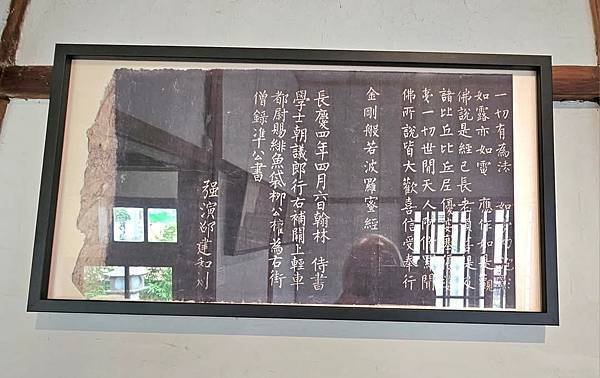 一切有為法 如
如露亦如電 應作如是觀
佛說是經已長老須菩提及
諸比丘比丘尼優婆塞優婆
夷一切世間天人阿修羅聞
佛所說皆大歡喜信受奉行
金剛般若波羅蜜經
長慶四年四月六日翰林 侍書
學士朝議郎行右補闕上輕車
都尉賜緋魚袋柳公權為右街
僧錄準公書
强演邵建和刂